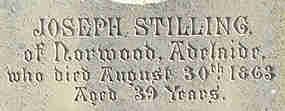 JOSEPH STILLING.
of Norwood, Adelaide,
who died August 30th 1863
Aged 39 Years.